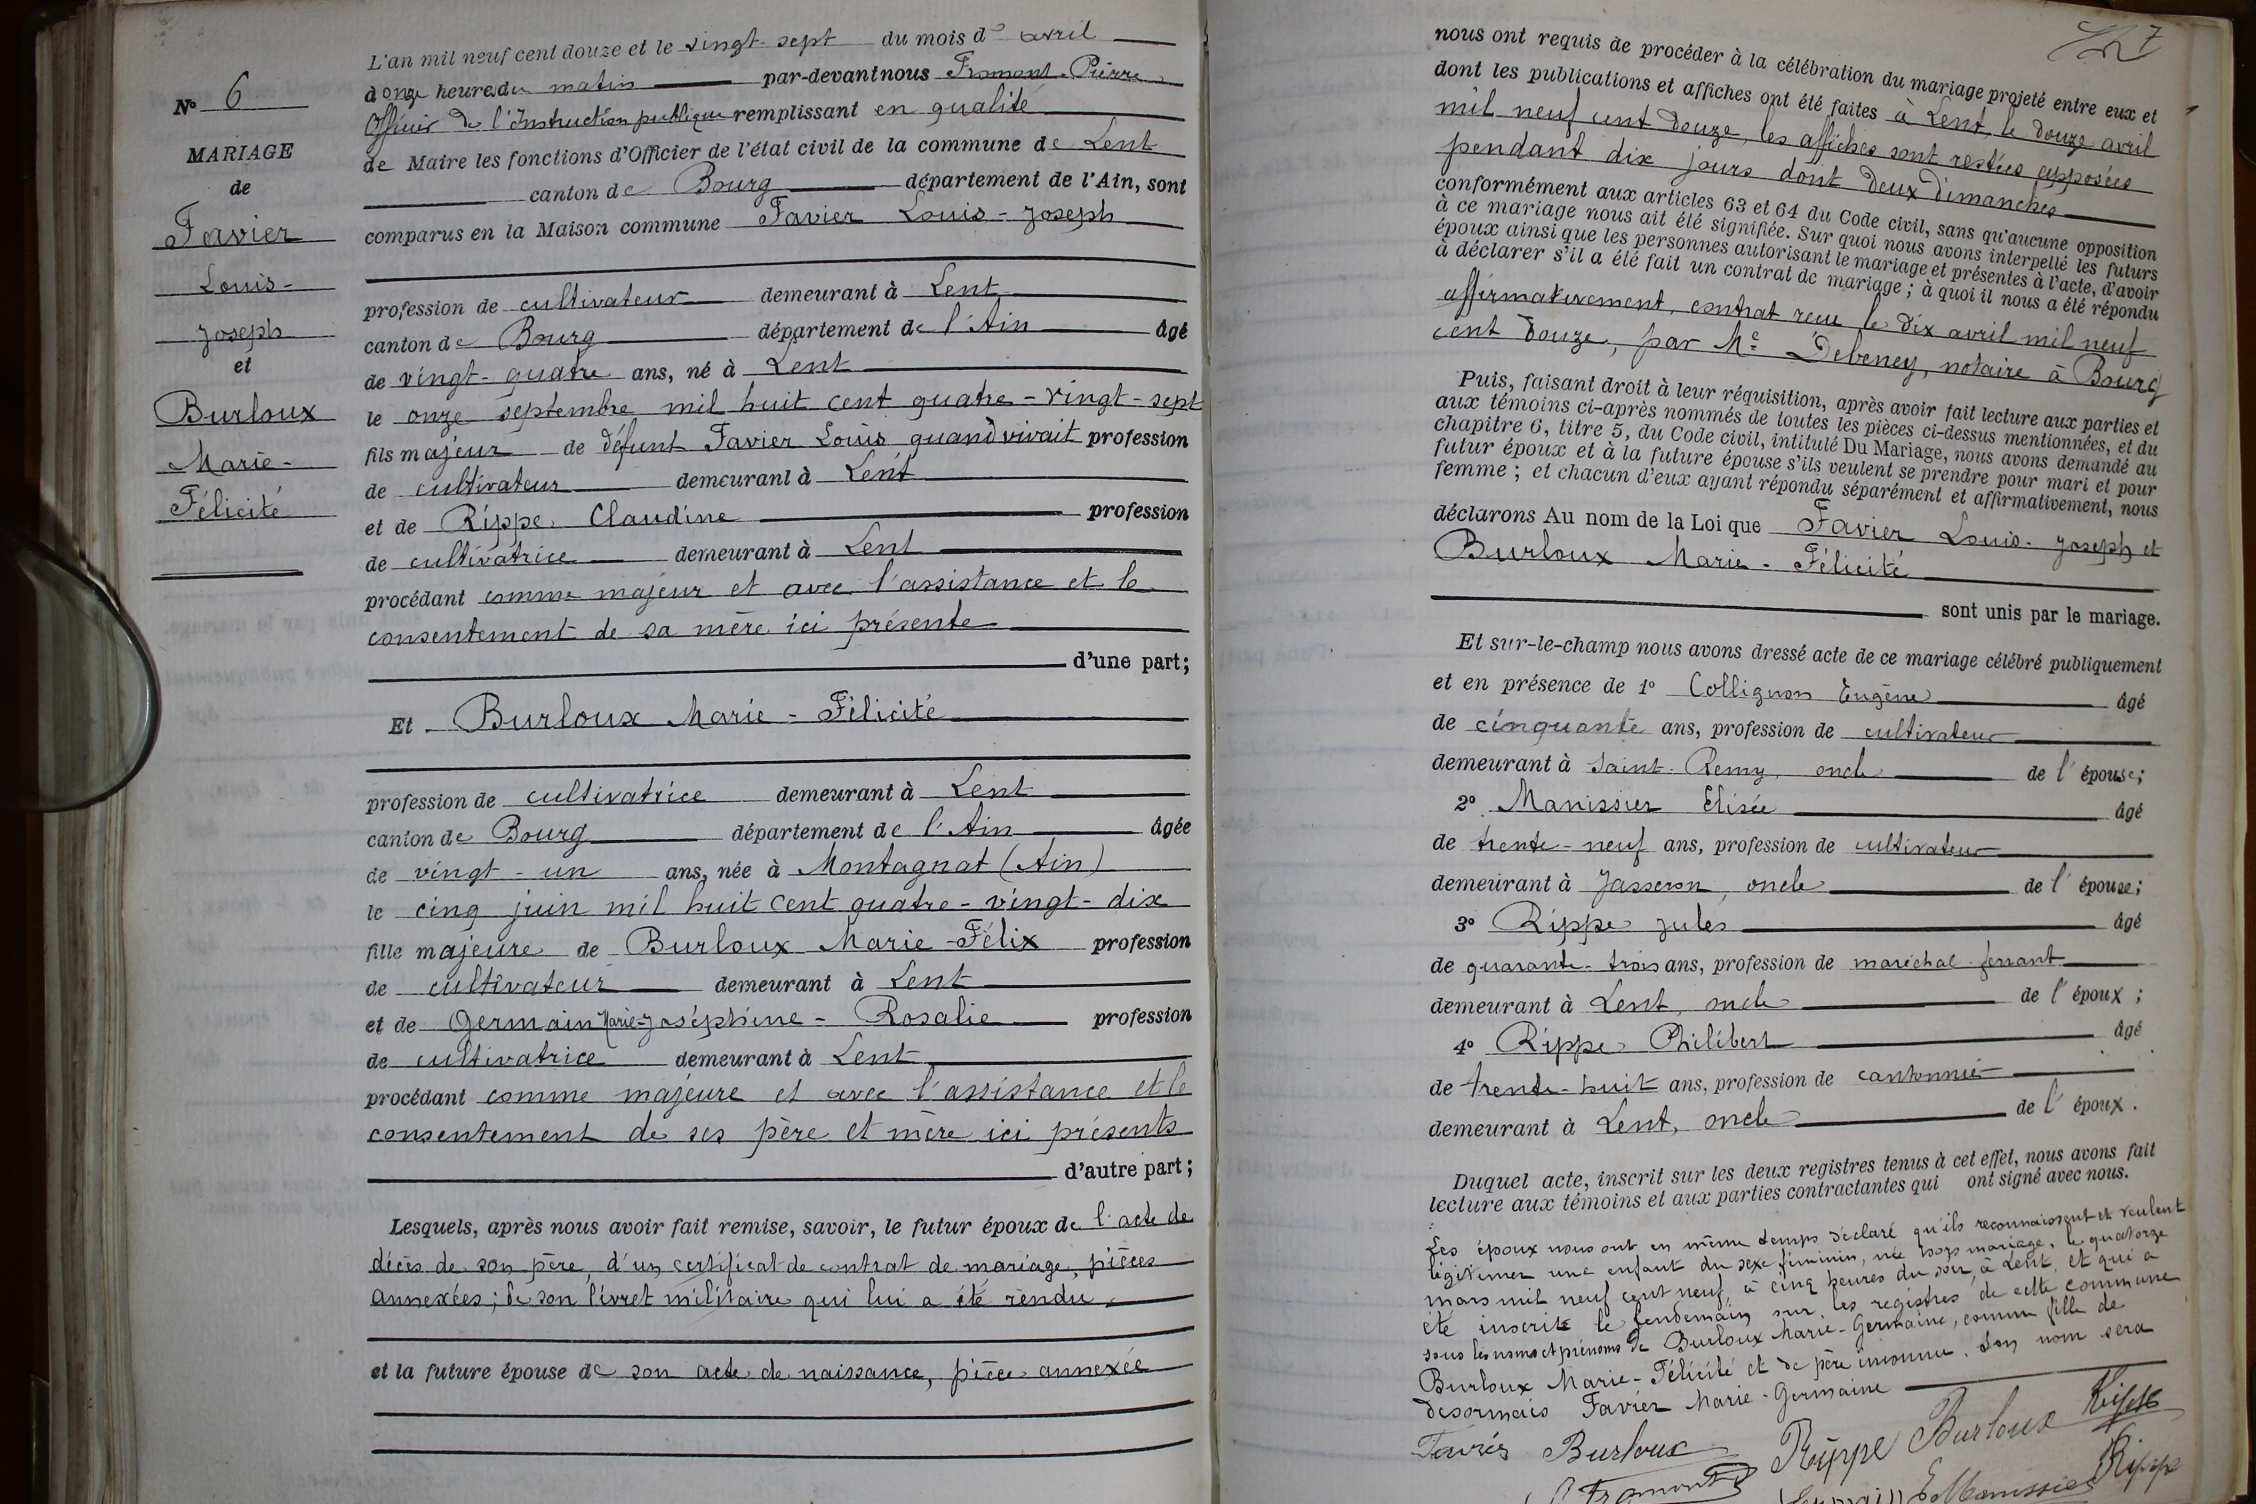 N° 6
MARIAGE
de
Favier
Louis-
Joseph
et
Burloux
Marie-
Félicité
L'an mil neuf cent douze et le vingt-sept du mois d' avril
à onze heures du matin par-devant nous Fromont Pierre
Officier de l'Instruction publique remplissant en qualité
de Maire les fonctions d'Officier de l'état civil de la commune de Lent
canton de Bourg département de l'Ain, sont
comparus en la Maison commune Favier Louis-Joseph
profession de cultivateur demeurant à Lent
canton de Bourg département de l'Ain âgé
de vingt-quatre ans, né à Lent
le onze septembre mil huit cent quatre-vingt-sept
fils majeur de défunt Favier Louis quand vivait profession
de cultivateur demeurant à Lent
et de Rippe Claudine profession
de cultivatrice demeurant à Lent
procédant comme majeur et avec l'assistance et le
consentement de sa mère ici présente
d'une part;
Et Burloux Marie-Félicité
profession de cultivatrice demeurant à Lent
canton de Bourg département de l'Ain âgée
de vingt-un ans, née à Montagnat (Ain)
le cinq juin mil huit cent quatre-vingt-dix
fille majeure de Burloux Marie-Félix profession
de cultivateur demeurant à Lent
et de Germain Marie-Joséphine-Rosalie profession
de cultivatrice demeurant à Lent
procédant comme majeure et avec l'assistance et le
consentement de ses père et mère ici présents
d'autre part;
Lesquels, après nous avoir fait remise, savoir, le futur époux de l'acte de
décès de son père, d'un certificat de contrat de mariage, pièces
annexées; de son livret militaire qui lui a été rendu.
et la future épouse de son acte de naissance, pièce annexée
7
nous ont requis de procéder à la célébration du mariage projeté entre eux et
dont les publications et affiches ont été faites à Lent, le douze avril
mil neuf cent douze, les affiches sont restées apposées
pendant dix jours dont deux dimanches
conformément aux articles 63 et 64 du Code civil, sans qu'aucune opposition
à ce mariage nous ait été signifiée. Sur quoi nous avons interpellé les futurs
époux ainsi que les personnes autorisant le mariage et présentes à l'acte, d'avoir
à déclarer s'il a été fait un contrat de mariage; à quoi il nous a été répondu
affirmativement, contrat reçu le dix avril mil neuf
cent douze, par Me Debeney, notaire à Bourg
Puis, faisant droit à leur réquisition, après avoir fait lecture aux parties et
aux témoins ci-après nommés de toutes les pièces ci-dessus mentionnées, et du
chapitre 6, titre 5, du Code civil, intitulé Du Mariage, nous avons demandé au
futur époux et à la future épouse s'ils veulent se prendre pour mari et pour
femme; et chacun d'eux ayant répondu séparément et affirmativement, nous
déclarons Au nom de la Loi que Favier Louis-Joseph et
Burloux Marie-Félicité
sont unis par le mariage.
Et sur-le-champ nous avons dressé acte de ce mariage célébré publiquement
et en présence de 1° Collignon Eugène âgé
de cinquante ans, profession de cultivateur
demeurant à Saint-Remy, oncle de l'épouse;
2° Manissier Elisée âgé
de trente-neuf ans, profession de cultivateur
demeurant à Jasseron, oncle de l'épouse;
3° Rippe Jules âgé
de quarante-trois ans, profession de maréchal-ferrant
demeurant à Lent, oncle de l'époux;
4° Rippe Philibert âgé
de trente-huit ans, profession de cantonnier
demeurant à Lent, oncle de l'époux.
Duquel acte, inscrit sur les deux registres tenus à cet effet, nous avons fait
lecture aux témoins et aux parties contractantes qui ont signé avec nous.
Les époux nous ont en même temps déclaré qu'ils reconnaissent et veulent
légitimer une enfant du sexe féminin, née hors mariage, le quatorze
mars mil neuf cent neuf, à cinq heures du soir, à Lent, et qui a
été inscrite le lendemain sur les registres de cette commune
sous les noms et prénoms de Burloux Marie-Germaine, comme fille de
Burloux Marie-Félicité et de père inconnu. Son nom sera
désormais Favier Marie-Germaine
Favier Burloux Rippe Burloux Rippe
Fromont Germain E Manissier Rippe